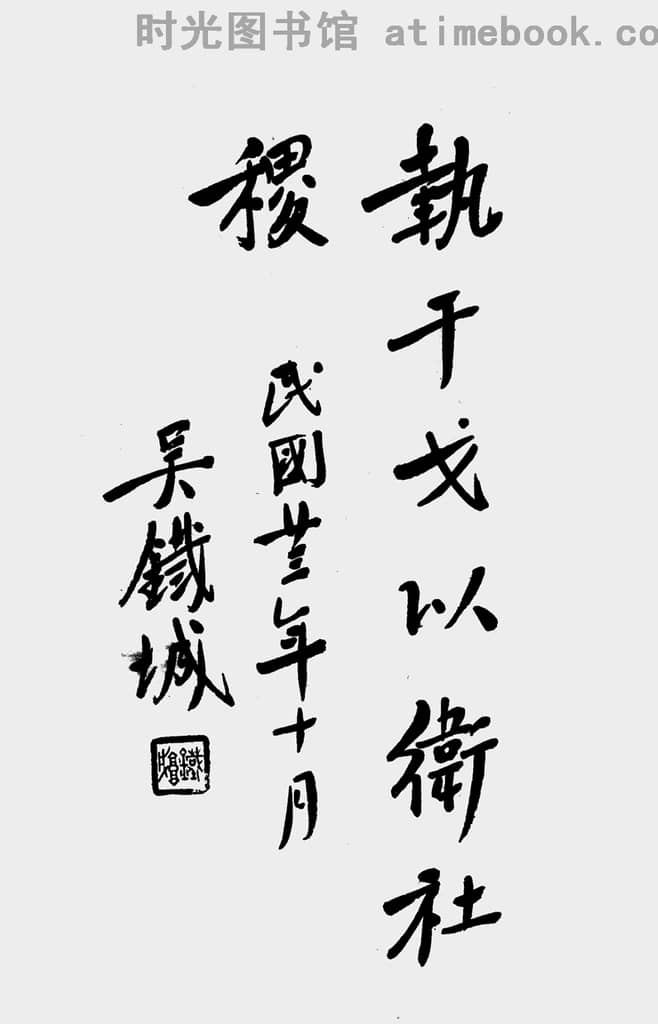 时光图书馆 atimebook.co
執干戈以衛社
稷
民國廿三年十月
吳鐵城